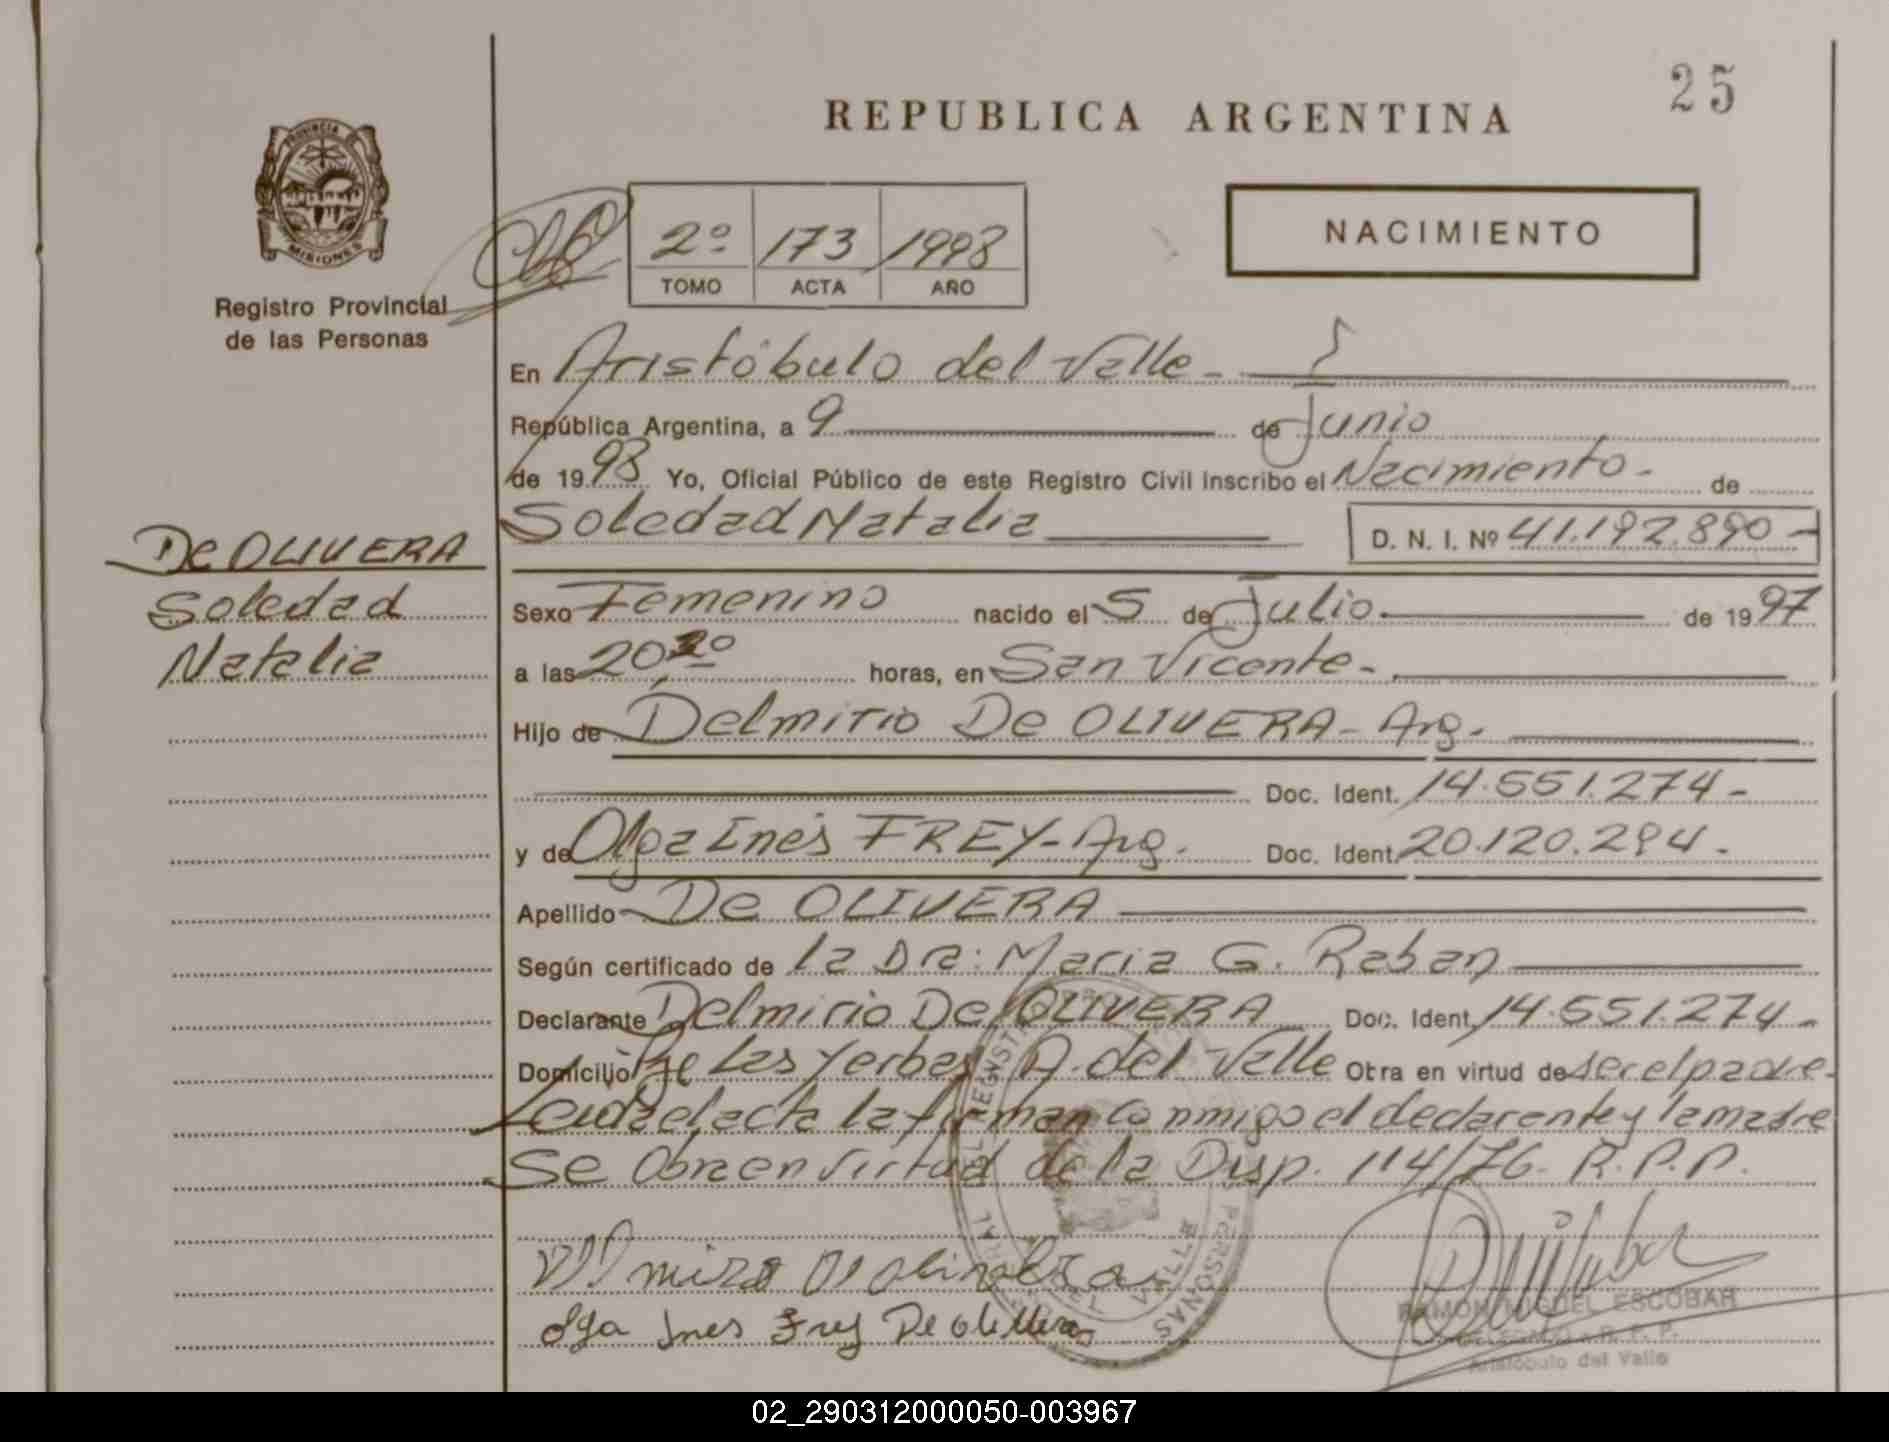 25
REPUBLICA ARGENTINA
PROVINCIA
MISIONES
Registro Provincial
de las Personas
2º 173 1998
TOMO ACTA AÑO
NACIMIENTO
En Aristóbulo del Valle -
República Argentina, a 9 de Junio
de 1998 Yo, Oficial Público de este Registro Civil Inscribo el Nacimiento - de
Soledad Natalia D. N. I. Nº 41.192.890 -
De OLIVERA
Soledad
Natalia
Sexo Femenino nacido el 5 de Julio de 1997
a las 20 horas, en San Vicente -
Hijo de Delmirio De OLIVERA - Arg.
Doc. Ident. 14.551.274 -
y de Olga Inés FREY - Arg. Doc. Ident. 20.120.294 -
Apellido De OLIVERA
Según certificado de la Dra: Maria G. Raban
Declarante Delmirio De OLIVERA Doc. Ident. 14.551.274 -
Domicilio Las Yerbas A. del Valle Otra en virtud de ser el padre -
Leida el acta la firman conmigo el declarante y la madre
Se Obra en virtud de la Disp. 114/76. R.P.P.
Olga Ines Frey De
RAMON MIGUEL ESCOBAR
R. P. P.
Aristóbulo del Valle
02_290312000050-003967